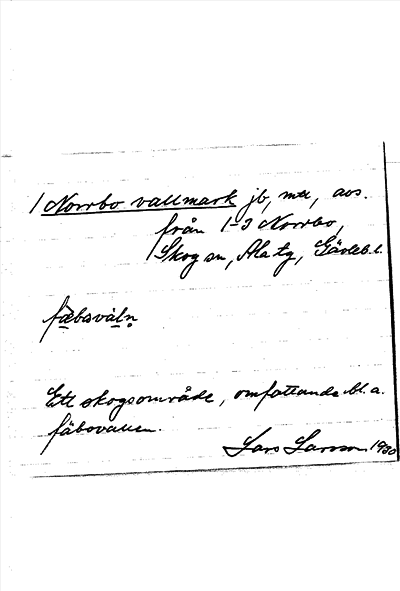 / Norrbo vallmark jb, mtl, avs.
från 1-3 Norrbo,
Skog sn, Ala tg, Gävleb. l.
fäbsväln
Ett skogsområde, omfattande bl. a.
fäbovallen.
Lars Larsson 1930